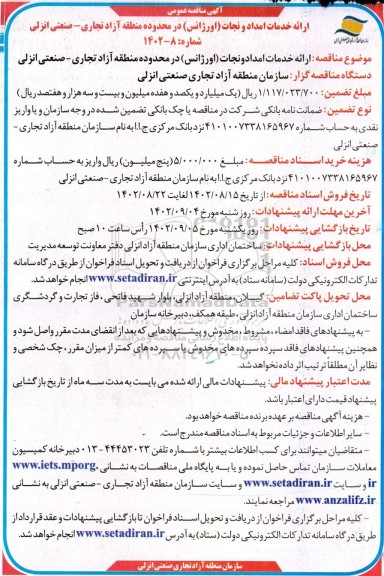 آگهی مناقصه عمومی
ارائه خدمات امداد و نجات (اورژانس) در محدوده منطقه آزاد تجاری - صنعتی انزلی
شماره: ۸-۱۴۰۲
موضوع مناقصه: ارائه خدمات امداد ونجات (اورژانس) در محدوده منطقه آزاد تجاری - صنعتی انزلی
دستگاه مناقصه گزار: سازمان منطقه آزاد تجاری صنعتی انزلی
مبلغ تضمین: ۱/۱۱۷/۰۲۳/۷۰۰ ریال (یک میلیارد و یکصد و هفده میلیون و بیست و سه هزار و هفتصد ریال)
نوع تضمین: ضمانت نامه بانکی شرکت در مناقصه یا چک بانکی تضمین شده در وجه سازمان و یا واریز
نقدی به حساب شماره ۴۱۰۱۰۰۷۳۳۸۱۶۵۹۶۷ نزد بانک مرکزی ج.ا.ا به نام سازمان منطقه آزاد تجاری -
صنعتی انزلی
هزینه خرید اسناد مناقصه: مبلغ ۵/۰۰۰/۰۰۰ (پنج میلیون) ریال واریز به حساب شماره
۴۱۰۱۰۰۷۳۳۸۱۶۵۹۶۷ نزد بانک مرکزی ج.ا.ا به نام سازمان منطقه آزاد تجاری - صنعتی انزلی
تاریخ فروش اسناد مناقصه: از تاریخ ۱۴۰۲/۰۸/۱۵ لغایت ۱۴۰۲/۰۸/۲۲
آخرین مهلت ارائه پیشنهادات: روز شنبه مورخ ۱۴۰۲/۰۹/۰۴
تاریخ بازگشایی پیشنهادات: روز یکشنبه مورخ ۱۴۰۲/۰۹/۰۵ رأس ساعت ۱۰ صبح
محل بازگشایی پیشنهادات: ساختمان اداری سازمان منطقه آزاد انزلی دفتر معاونت توسعه مدیریت
محل فروش اسناد: کلیه مراحل برگزاری فراخوان از دریافت و تحویل اسناد فراخوان از طریق درگاه سامانه
تدارکات الکترونیکی دولت (سامانه ستاد) به آدرس اینترنتی www.setadiran.ir انجام خواهد شد.
محل تحویل پاکت تضامین: گیلان، منطقه آزاد انزلی، بلوار شهید فاتحی، فاز تجارت و گردشگری
ساختمان اداری سازمان منطقه آزاد انزلی، طبقه همکف، دبیرخانه سازمان
- به پیشنهادهای فاقد امضاء، مشروط، مخدوش و پیشنهادهایی که بعد از انقضای مدت مقرر واصل شود و
همچنین پیشنهادهای فاقد سپرده سپرده های مخدوش یا سپرده های کمتر از میزان مقرر، چک شخصی و
نظایر آن مطلقاً ترتیب اثر داده نخواهد شد.
مدت اعتبار پیشنهاد مالی: پیشنهادات مالی ارائه شده می بایست به مدت سه ماه از تاریخ بازگشایی
پیشنهاد قیمت دارای اعتبار باشد.
- هزینه آگهی مناقصه بر عهده برنده مناقصه خواهد بود.
- سایر اطلاعات و جزئیات مربوط به اسناد مناقصه مندرج است.
- متقاضیان میتوانند برای کسب اطلاعات بیشتر با شماره تلفن ۴۴۴۵۳۰۲۳-۰۱۳ دبیرخانه کمیسیون
معاملات سازمان تماس حاصل نموده و یا به پایگاه ملی مناقصات به نشانی www.iets.mporg.
ir و سایت www.setadiran.ir و سایت سازمان منطقه آزاد تجاری - صنعتی انزلی به نشانی
www.anzalifz.ir مراجعه نمایند.
- کلیه مراحل برگزاری فراخوان از دریافت و تحویل اسناد فراخوان تا بازگشایی پیشنهادات و عقد قرارداد از
طریق درگاه سامانه تدارکات الکترونیکی دولت (ستاد) به آدرس www.setadiran.ir انجام خواهد شد.
سازمان منطقه آزاد تجاری صنعتی انزلی